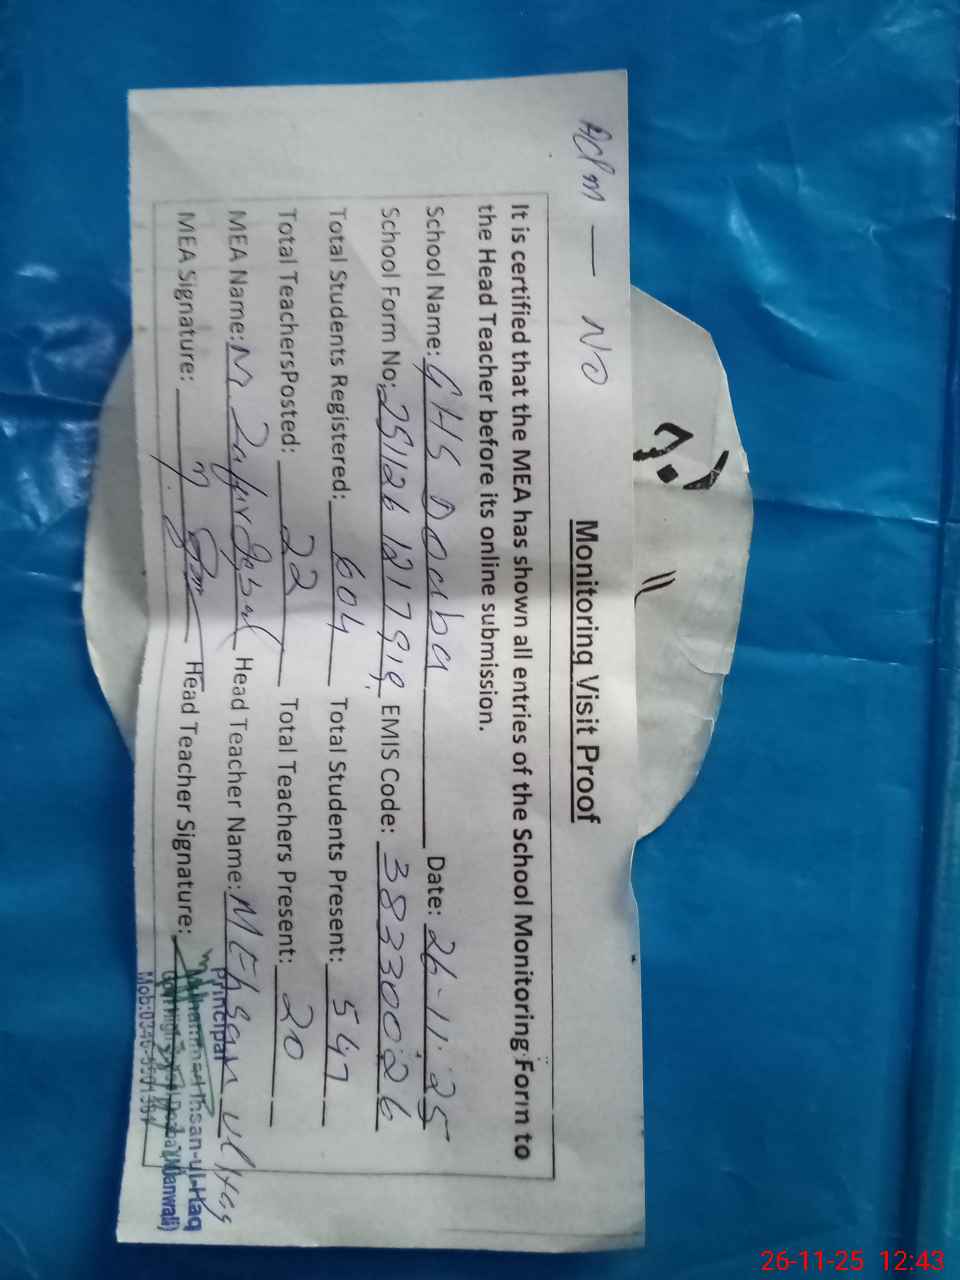 ACIM — NO
Monitoring Visit Proof
It is certified that the MEA has shown all entries of the School Monitoring Form to
the Head Teacher before its online submission.
School Name: GHS Doaba Date: 26-11-25
School Form No: 251126 121791 EMIS Code: 38330026
Total Students Registered: 604 Total Students Present: 547
Total TeachersPosted: 22 Total Teachers Present: 20
MEA Name: M Zafar Iqbal Head Teacher Name: M Ehsan ul Haq
MEA Signature: Head Teacher Signature:
Principal
Muhammad Ihsan-ul-Haq
Doaba (Mianwali)
Mob:
26-11-25 12:43